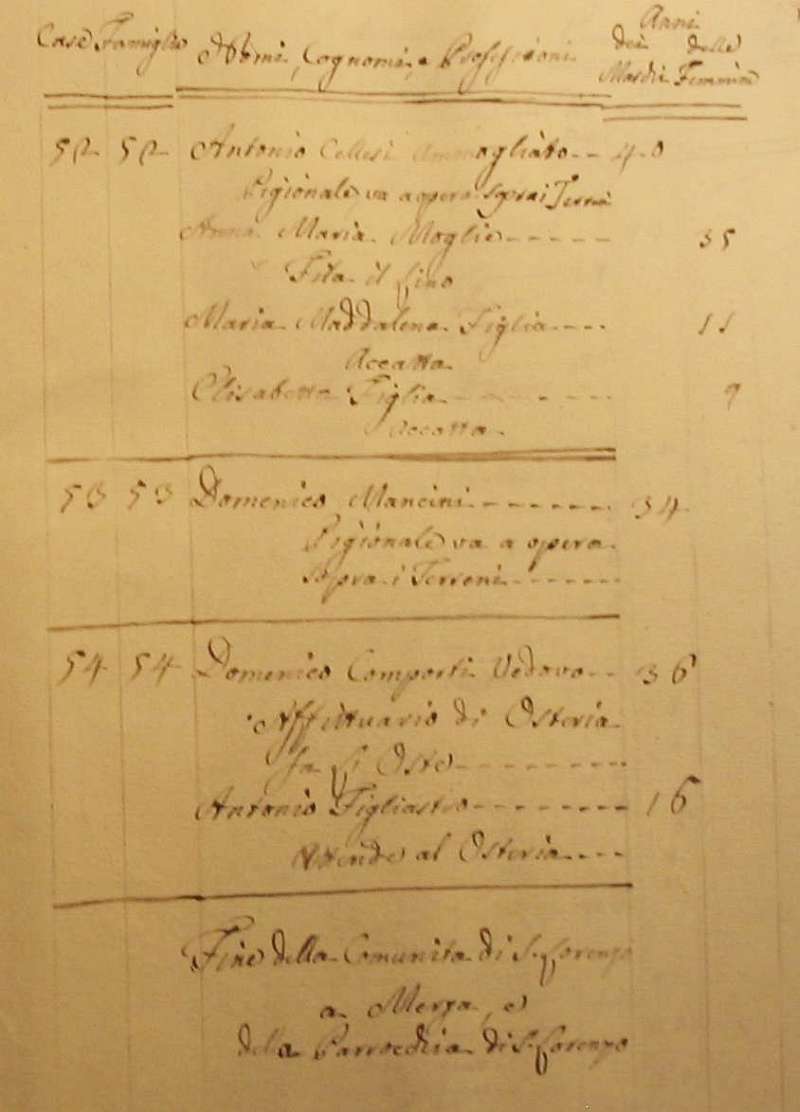 Case Famiglie Nomi, Cognomi, e Professioni Anni
dei delle
Maschi Femmine
52 52 Antonio Collesi Ammogliato 40
Pigionale va a opera sopra i Terreni
Anna Maria Moglie 35
Fila il fino
Maria Maddalena Figlia 11
Accatta
Elisabetta Figlia 9
Accatta
53 53 Domenico Mancini 34
Pigionale va a opera
sopra i Terreni
54 54 Domenico Comporti Vedovo 36
Affittuario di Osteria
fa Oste
Antonio Figliastro 16
Attende al Osteria
Fine della Comunita di S. Lorenzo
a Mersa, e
dela Parrochia di S. Lorenzo